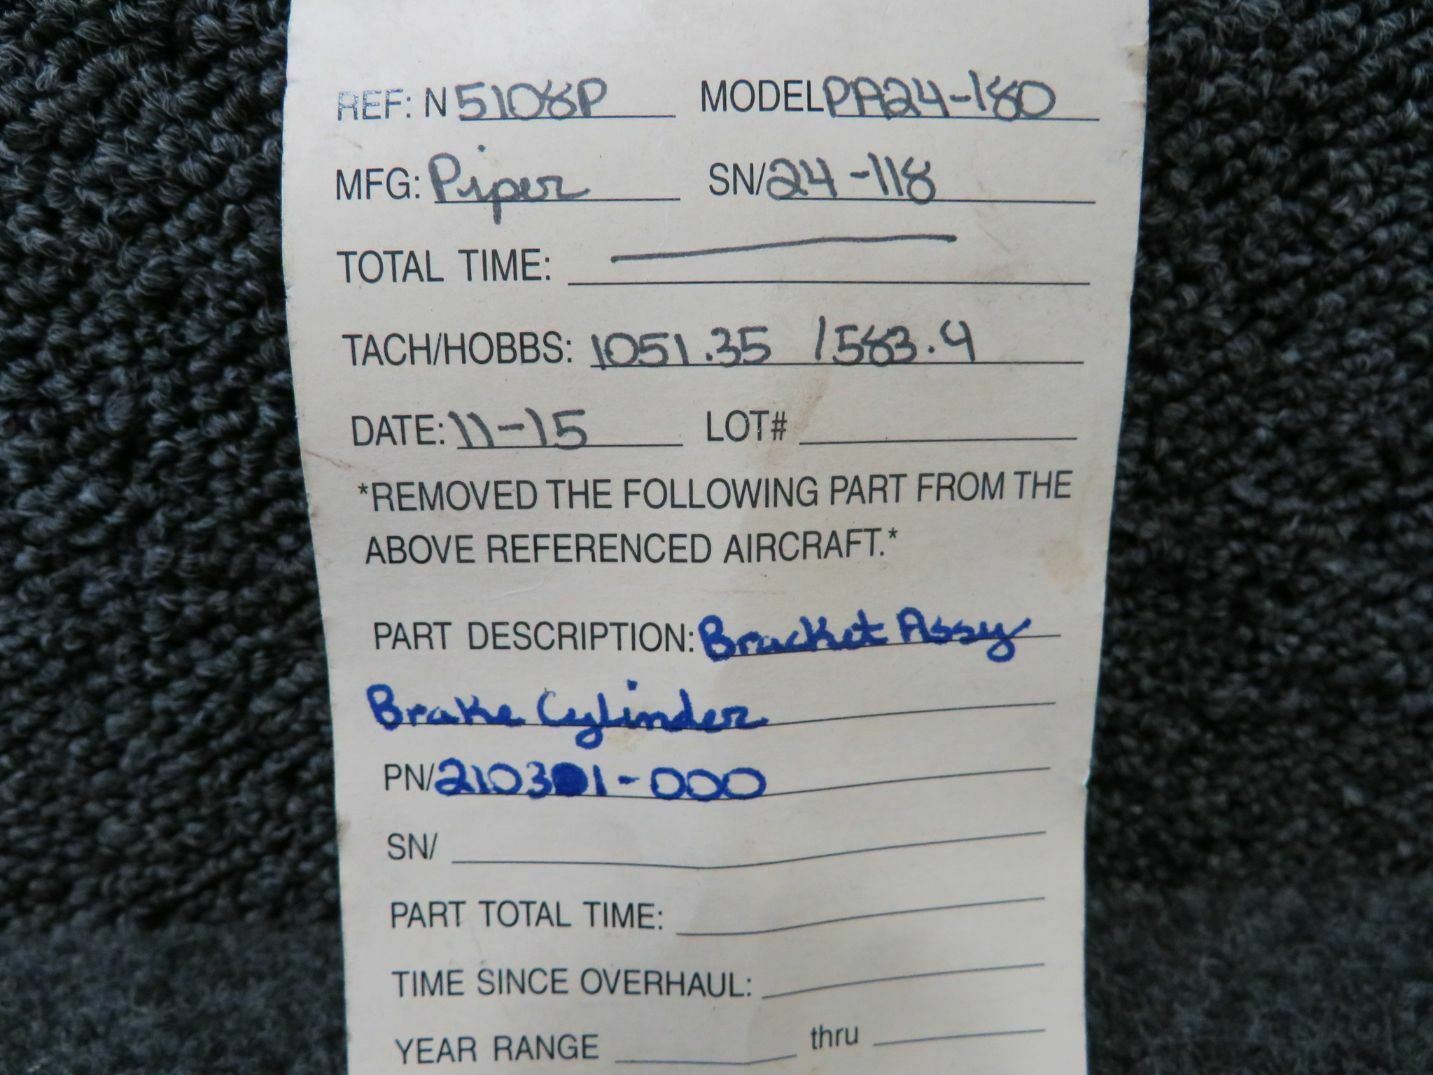 REF: N 5108P MODEL PA24-180
MFG: Piper SN/ 24-118
TOTAL TIME:
TACH/HOBBS: 1051.35 / 583.4
DATE: 11-15 LOT#
*REMOVED THE FOLLOWING PART FROM THE
ABOVE REFERENCED AIRCRAFT.*
PART DESCRIPTION: Bracket Assy
Brake Cylinder
PN/
SN/
PART TOTAL TIME:
TIME SINCE OVERHAUL:
YEAR RANGE thru